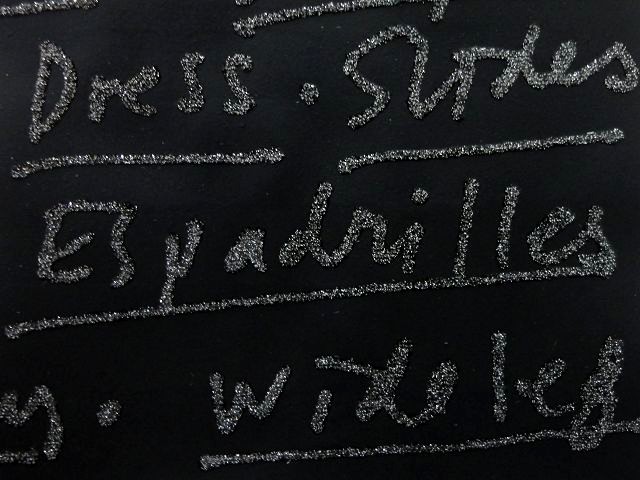 Dress . Strides
Espadrilles
y . Wide leg